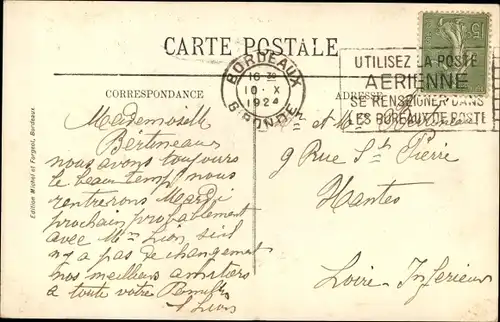 CARTE POSTALE
BORDEAUX
16 30
10 - X
1924
GIRONDE
UTILISEZ LA POSTE
AERIENNE
SE RENSEIGNER DANS
LES BUREAUX DE POSTE
CORRESPONDANCE
ADRESSE
Edition Michel et Forgeot, Bordeaux.
Mademoiselle
Bertineau
nous avons toujours
le beau temp nous
rentrerons Mardi
prochain probablement
avec Mme Lion siil
n'y a pas de changement
nos meilleurs amitiers
a toute votre
Lion
et Me
9 Rue St Pierre
Nantes
Loire-Inferieure